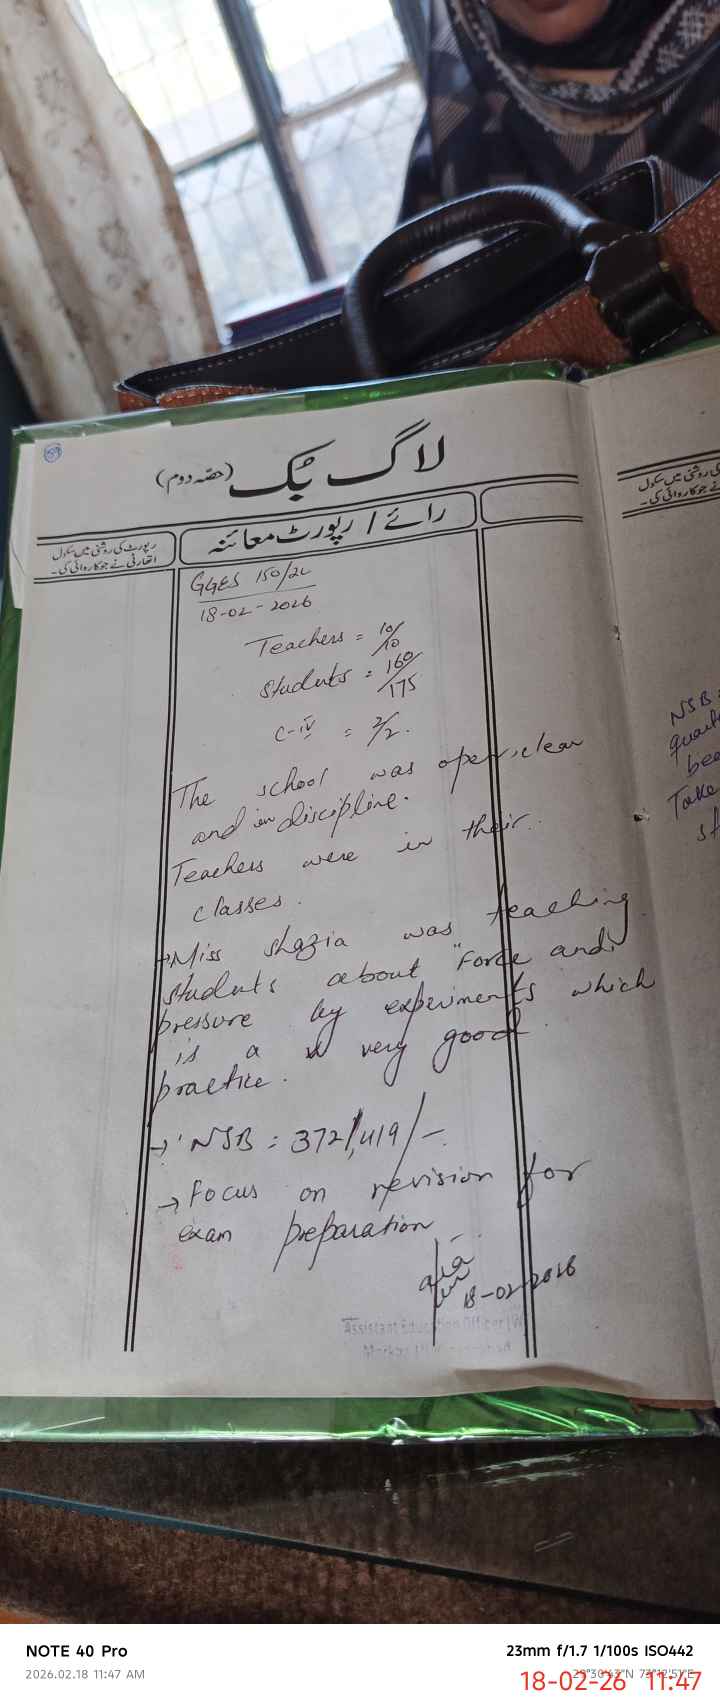 لاگ بک (حصّہ دوم)
رائے / رپورٹ معائنہ
رپورٹ کی روشنی میں سکول
اتھارٹی نے جو کاروائی کی۔
GGES 150/2L
18-02-2026
Teachers = 10/10
Students = 160/175
C-IV = 2/2.
The school was open, clean
and in discipline.
Teachers were in their
classes.
→Miss Shazia was teaching
students about "Force and
pressure by experiments which
is a very good
practice.
→ NSB = 372,419/-
→ Focus on revision for
exam preparation
18-02-2026
Assistant Education Officer (W)
Markaz
ی روشنی میں سکول
نے جو کاروائی کی۔
NSB =
Take
NOTE 40 Pro
2026.02.18 11:47 AM
23mm f/1.7 1/100s ISO442
18-02-26 11:47